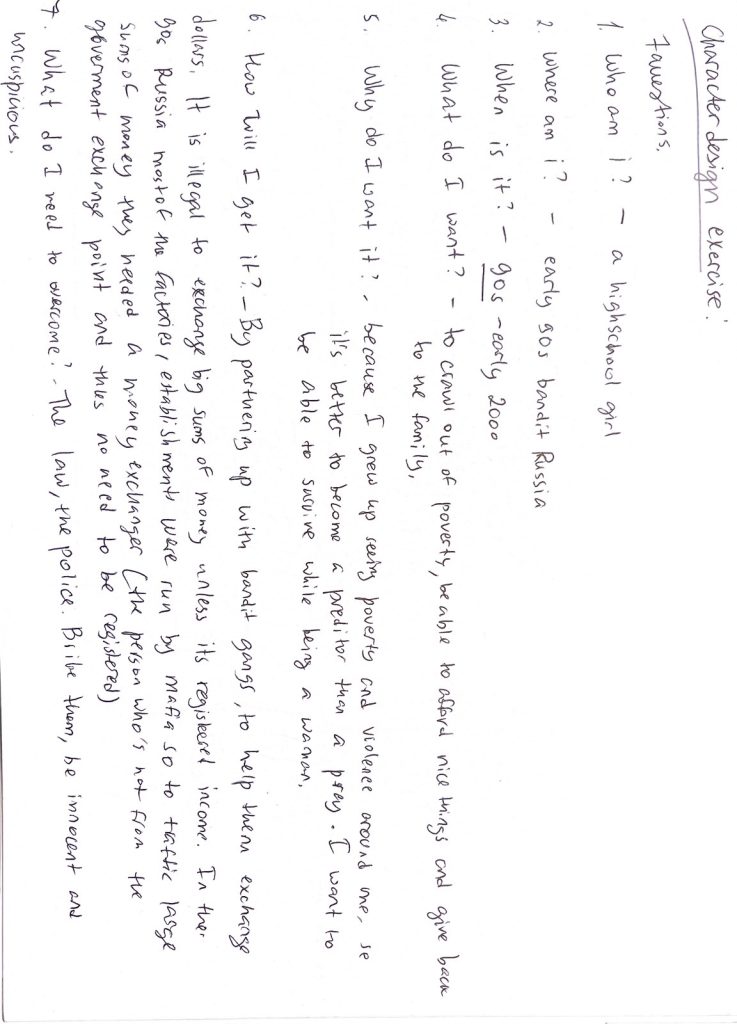 Character design exercise:
7 questions.
1. Who am i? – a highschool girl
2. where am i? – early 90s bandit Russia
3. When is it? – 90s – early 2000
4. What do I want? – to crawl out of poverty, be able to afford nice things and give back
to the family,
5. Why do I want it? - because I grew up seeing poverty and violence around me, se
it's better to become a preditor than a prey. I want to
be able to survive while being a waman,
6. How will I get it? – By partnering up with bandit gangs, to help them exchange
dollars. It is illegal to exchange big sums of money unless its registered income. In the
90s Russia most of the factories, establishments were run by mafia so to traffic large
sums of money they needed a money exchanger (the person who's not from the
goverment exchange point and thus no need to be registered)
7. What do I need to overcome? - The law, the police. Bribe them, be innocent and
uncuspicious.